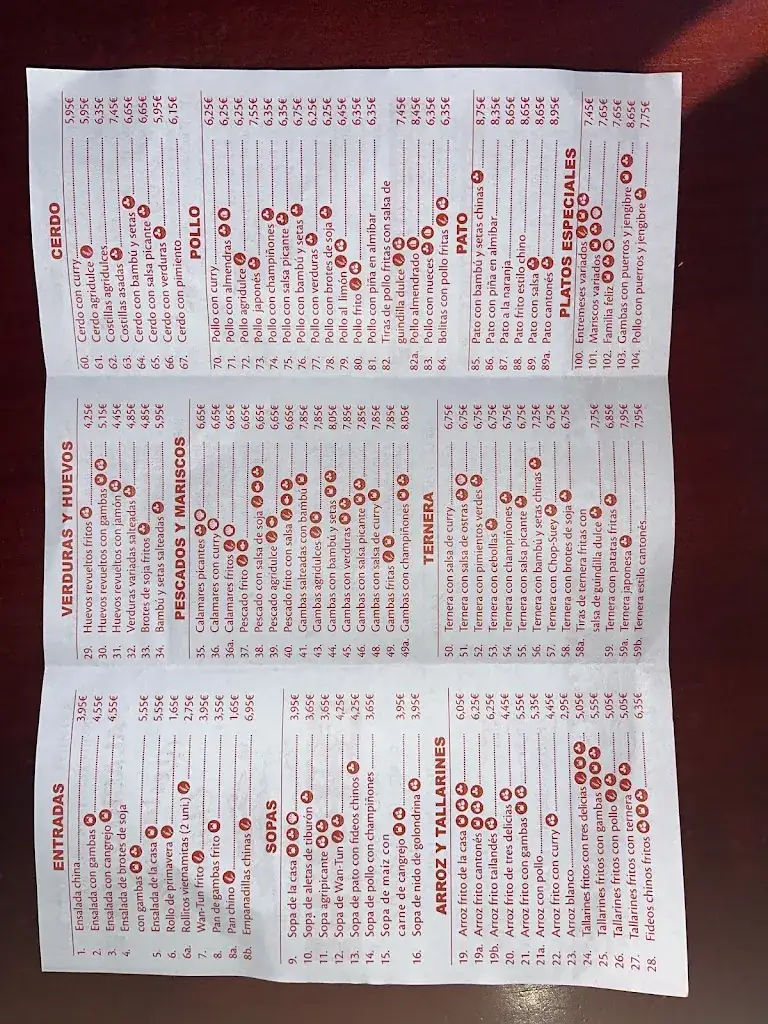 ENTRADAS
1. Ensalada china 3,95€
2. Ensalada con gambas 4,55€
3. Ensalada con cangrejo 4,55€
4. Ensalada de brotes de soja
con gambas 5,55€
5. Ensalada de la casa 5,55€
6. Rollo de primavera 1,65€
6a. Rollitos vietnamitas (2 uni.) 2,75€
7. Wan-Tun frito 3,95€
8. Pan de gambas frito 3,55€
8a. Pan chino 1,65€
8b. Empanadillas chinas 6,95€
SOPAS
9. Sopa de la casa 3,95€
10. Sopa de aletas de tiburón 3,65€
11. Sopa agripicante 3,65€
12. Sopa de Wan-Tun 4,25€
13. Sopa de pato con fideos chinos 4,25€
14. Sopa de pollo con champiñones 3,65€
15. Sopa de maíz con
carne de cangrejo 3,95€
16. Sopa de nido de golondrina 3,95€
ARROZ Y TALLARINES
19. Arroz frito de la casa 6,05€
19a. Arroz frito cantonés 6,25€
19b. Arroz frito tailandés 6,25€
20. Arroz frito de tres delicias 4,45€
21. Arroz frito con gambas 5,55€
21a. Arroz con pollo 5,35€
22. Arroz frito con curry 4,45€
23. Arroz blanco 2,95€
24. Tallarines fritos con tres delicias 5,05€
25. Tallarines fritos con gambas 5,55€
26. Tallarines fritos con pollo 5,05€
27. Tallarines fritos con ternera 5,05€
28. Fideos chinos fritos 6,35€
VERDURAS Y HUEVOS
29. Huevos revueltos fritos 4,25€
30. Huevos revueltos con gambas 5,15€
31. Huevos revueltos con jamón 4,45€
32. Verduras variadas salteadas 4,85€
33. Brotes de soja fritos 4,85€
34. Bambú y setas salteadas 5,95€
PESCADOS Y MARISCOS
35. Calamares picantes 6,65€
36. Calamares con curry 6,65€
36a. Calamares fritos 6,65€
37. Pescado frito 6,65€
38. Pescado con salsa de soja 6,65€
39. Pescado agridulce 6,65€
40. Pescado frito con salsa 6,65€
41. Gambas salteadas con bambú 7,85€
43. Gambas agridulces 7,85€
44. Gambas con bambú y setas 8,05€
45. Gambas con verduras 7,85€
46. Gambas con salsa picante 7,85€
48. Gambas con salsa de curry 7,85€
49. Gambas fritas 7,85€
49a. Gambas con champiñones 8,05€
TERNERA
50. Ternera con salsa de curry 6,75€
51. Ternera con salsa de ostras 6,75€
52. Ternera con pimientos verdes 6,75€
53. Ternera con cebollas 6,75€
54. Ternera con champiñones 6,75€
55. Ternera con salsa picante 6,75€
56. Ternera con bambú y setas chinas 7,25€
57. Ternera con Chop-Suey 6,75€
58. Ternera con brotes de soja 6,75€
58a. Tiras de ternera fritas con
salsa de guindilla dulce 7,75€
59. Ternera con patatas fritas 6,85€
59a. Ternera japonesa 7,95€
59b. Ternera estilo cantonés 7,95€
CERDO
60. Cerdo con curry 5,95€
61. Cerdo agridulce 5,95€
62. Costillas agridulces 6,35€
63. Costillas asadas 7,45€
64. Cerdo con bambú y setas 6,65€
65. Cerdo con salsa picante 6,65€
66. Cerdo con verduras 5,95€
67. Cerdo con pimiento 6,15€
POLLO
70. Pollo con curry 6,25€
71. Pollo con almendras 6,25€
72. Pollo agridulce 6,25€
73. Pollo japonés 7,55€
74. Pollo con champiñones 6,35€
75. Pollo con salsa picante 6,35€
76. Pollo con bambú y setas 6,75€
77. Pollo con verduras 6,25€
78. Pollo con brotes de soja 6,25€
79. Pollo al limón 6,45€
80. Pollo frito 6,35€
81. Pollo con piña en almíbar 6,35€
82. Tiras de pollo fritas con salsa de
guindilla dulce 7,45€
82a. Pollo almendrado 8,45€
83. Pollo con nueces 6,35€
84. Bolitas con pollo fritas 6,35€
PATO
85. Pato con bambú y setas chinas 8,75€
86. Pato con piña en almíbar 8,35€
87. Pato a la naranja 8,65€
88. Pato frito estilo chino 8,65€
89. Pato con salsa 8,65€
89a. Pato cantonés 8,95€
PLATOS ESPECIALES
100. Entremeses variados 7,45€
101. Mariscos variados 7,65€
102. Familia feliz 7,65€
103. Gambas con puerros y jengibre 8,65€
104. Pollo con puerros y jengibre 7,75€